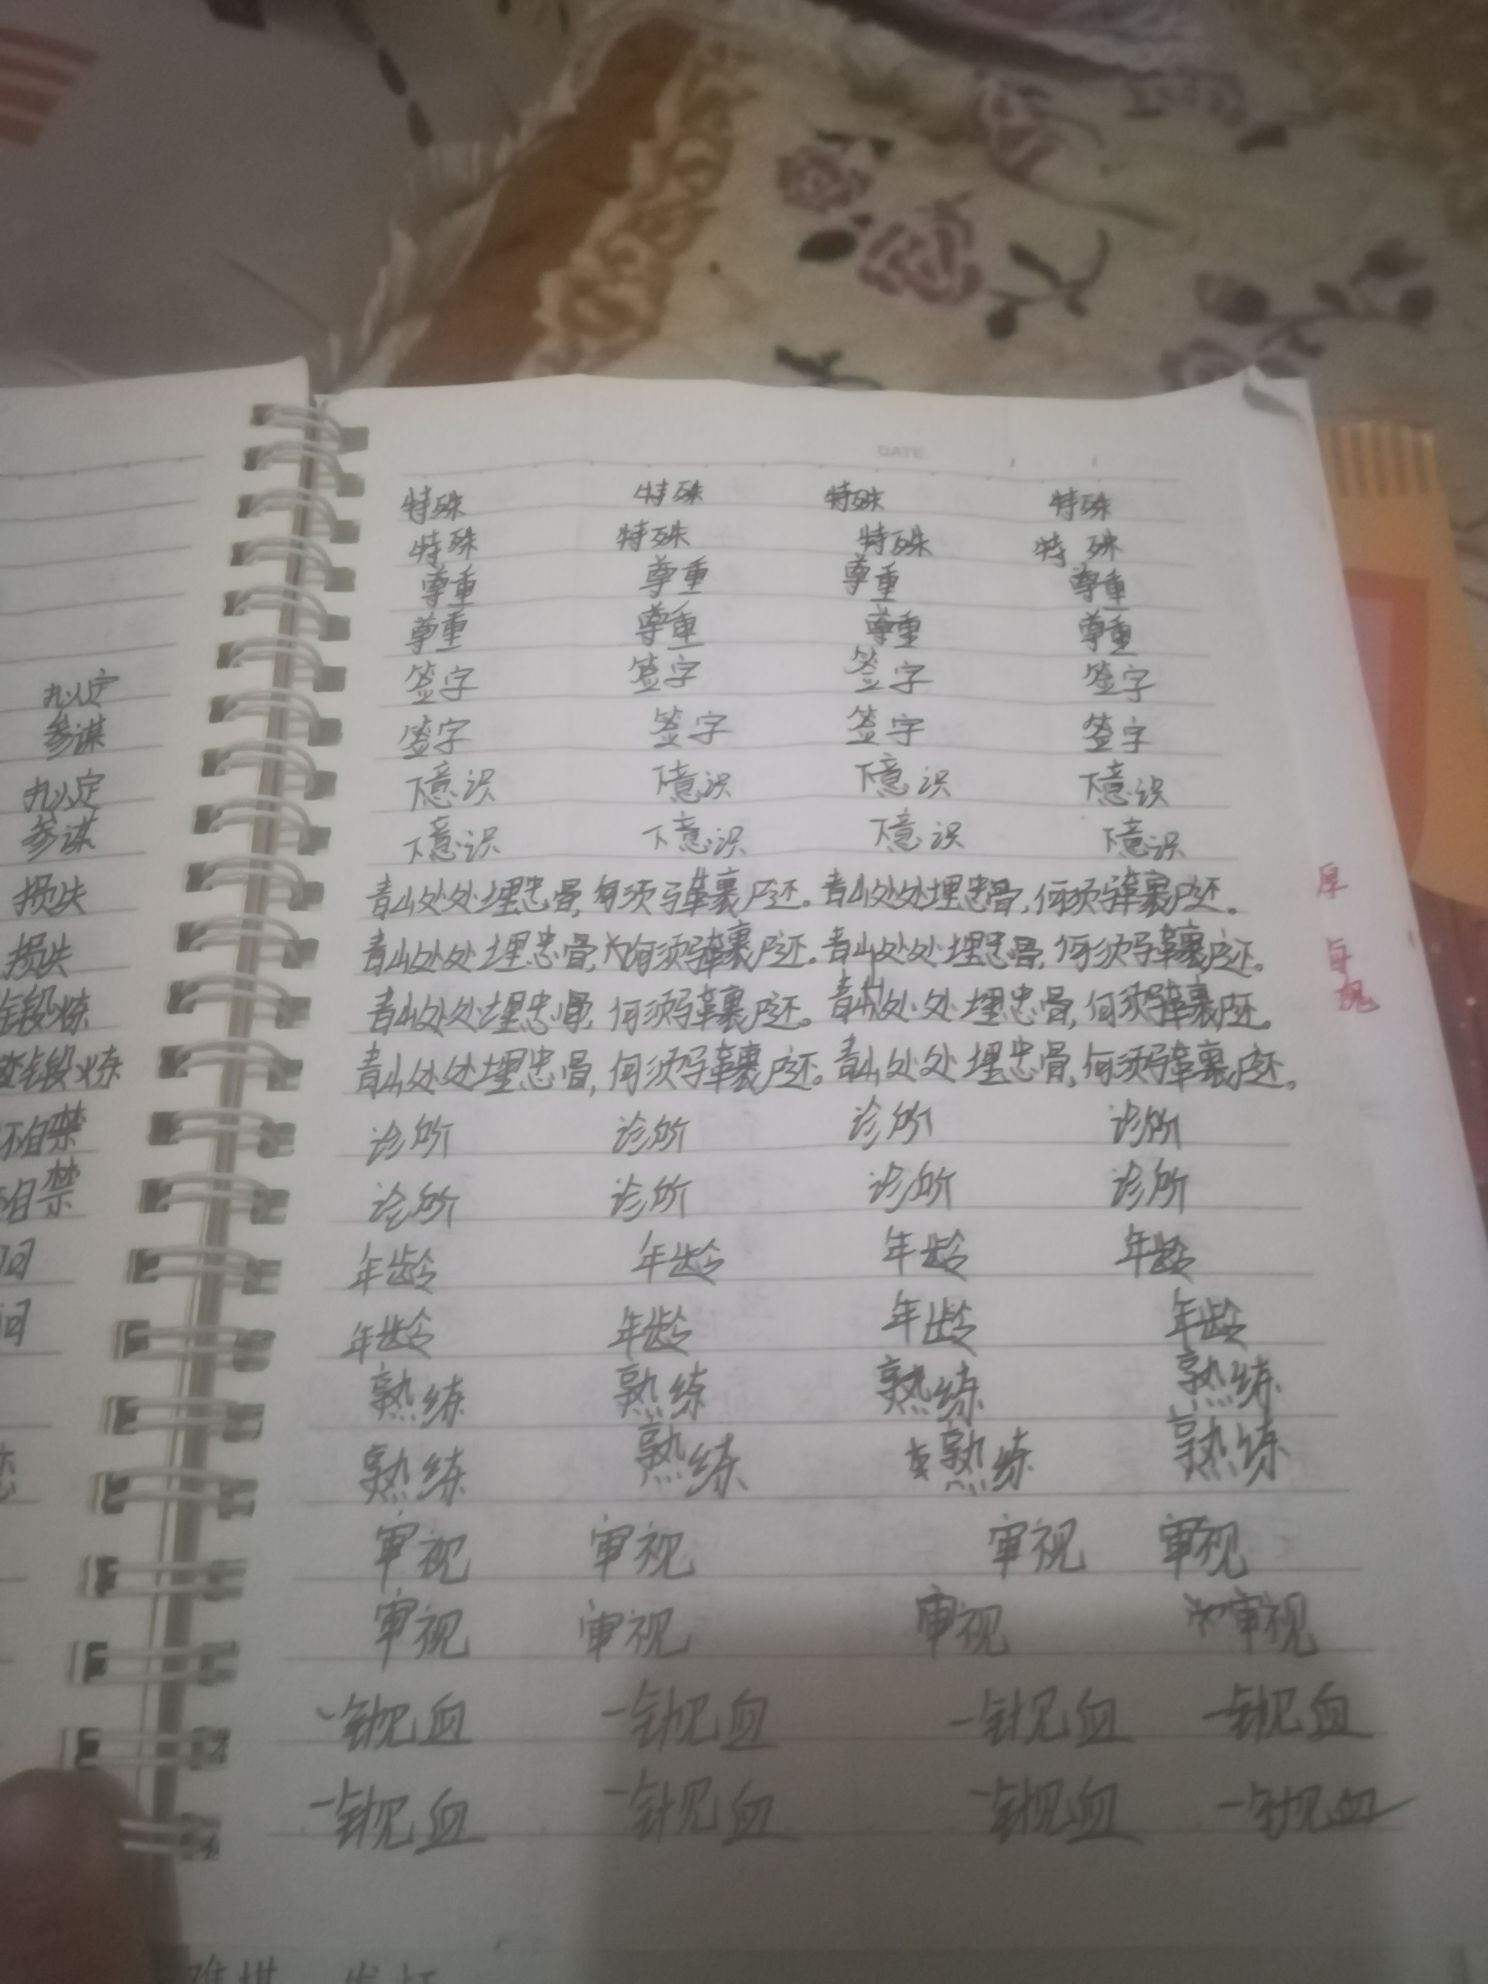 DATE
特殊 特殊 特殊 特殊
特殊 特殊 特殊 特殊
尊重 尊重 尊重 尊重
尊重 尊重 尊重 尊重
签字 签字 签字 签字
签字 签字 签字 签字
下意识 下意识 下意识 下意识
下意识 下意识 下意识 下意识
青山处处埋忠骨,何须马革裹尸还。青山处处埋忠骨,何须马革裹尸还。
青山处处埋忠骨,何须马革裹尸还。青山处处埋忠骨,何须马革裹尸还。
青山处处埋忠骨,何须马革裹尸还。青山处处埋忠骨,何须马革裹尸还。
青山处处埋忠骨,何须马革裹尸还。青山处处埋忠骨,何须马革裹尸还。
诊所 诊所 诊所 诊所
诊所 诊所 诊所 诊所
年龄 年龄 年龄 年龄
年龄 年龄 年龄 年龄
熟练 熟练 熟练 熟练
熟练 熟练 熟练 熟练
审视 审视 审视 审视
审视 审视 审视 审视
一针见血 一针见血 一针见血 一针见血
一针见血 一针见血 一针见血 一针见血
参谋
参谋
损失
损失
锻炼
锻炼
自禁
自禁
厚